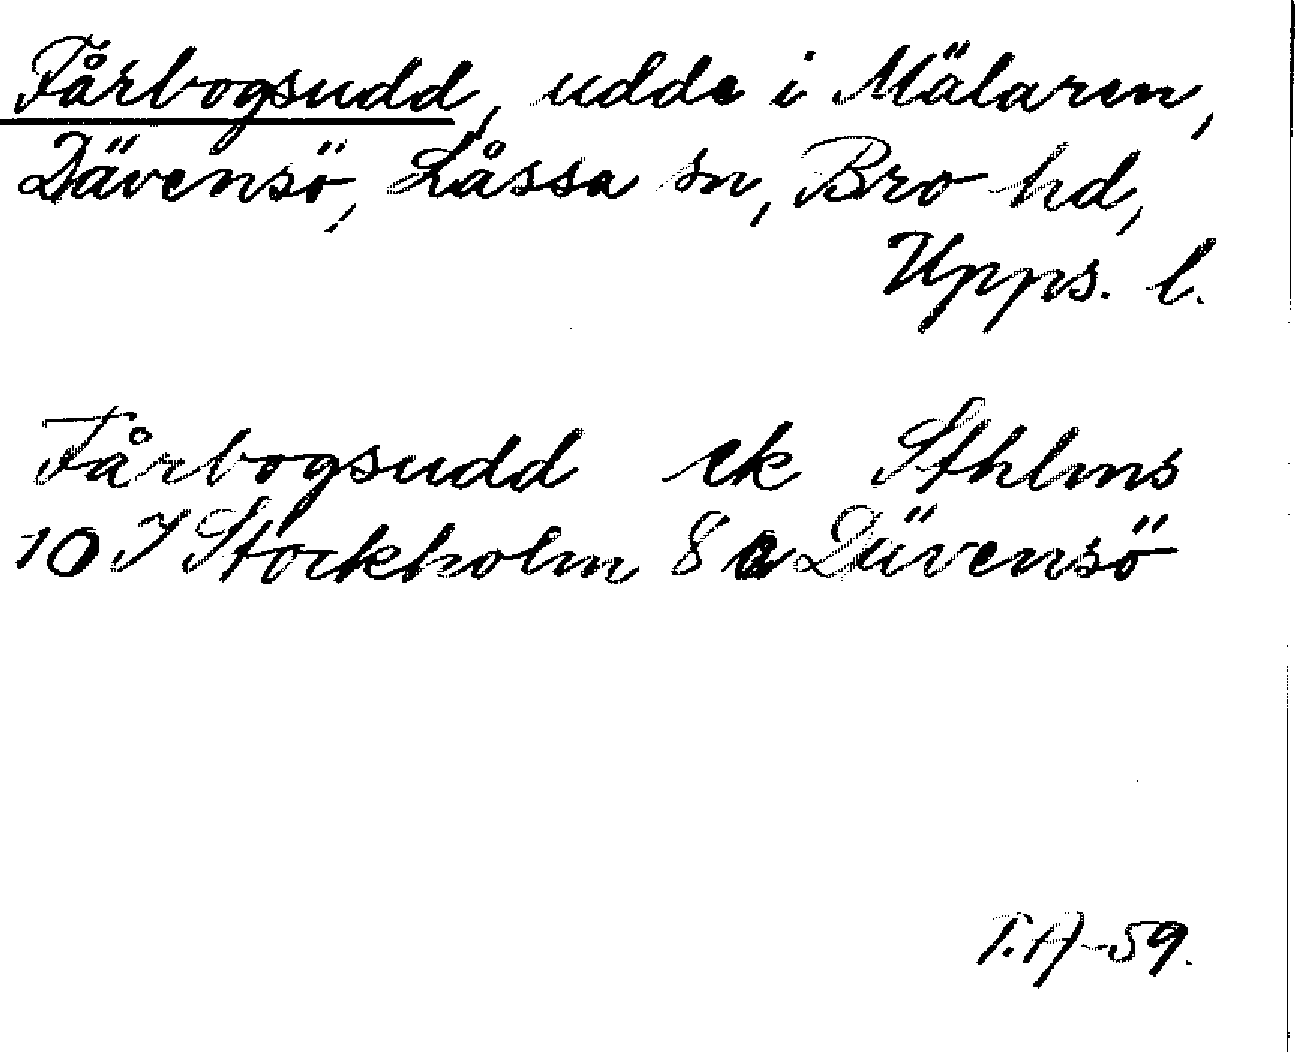 Fårbogsudd, udde i Mälaren,
Dävensö, Låssa sn, Bro hd,
Upps. l.
Fårbogsudd ek Sthlms
10 I Stockholm 8 c Dävensö
T.A-59.